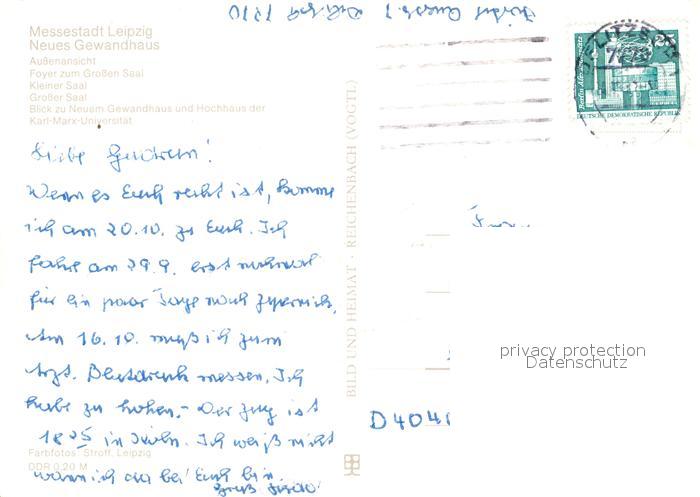 Messestadt Leipzig
Neues Gewandhaus
Außenansicht
Foyer zum Großen Saal
Kleiner Saal
Großer Saal
Blick zu Neuem Gewandhaus und Hochhaus der
Karl-Marx-Universität
Liebe
Wenn es Euch recht ist, komme
ich am 20.10. zu Euch. Ich
fahre am 29.9. erst nochmal
für ein paar Tage nach
Am 16.10. muß ich zum
Arzt. Blutdruck messen. Ich
habe zu hohen.- Der Zug ist
18 25 in Köln. Ich weiß nicht
wann ich da bei Euch bin.
Gruß
Farbfotos: Stroff, Leipzig
DDR 0,20 M
BILD UND HEIMAT · REICHENBACH (VOGTL)
25
DEUTSCHE DEMOKRATISCHE REPUBLIK
Frau
privacy protection
Datenschutz
D 404